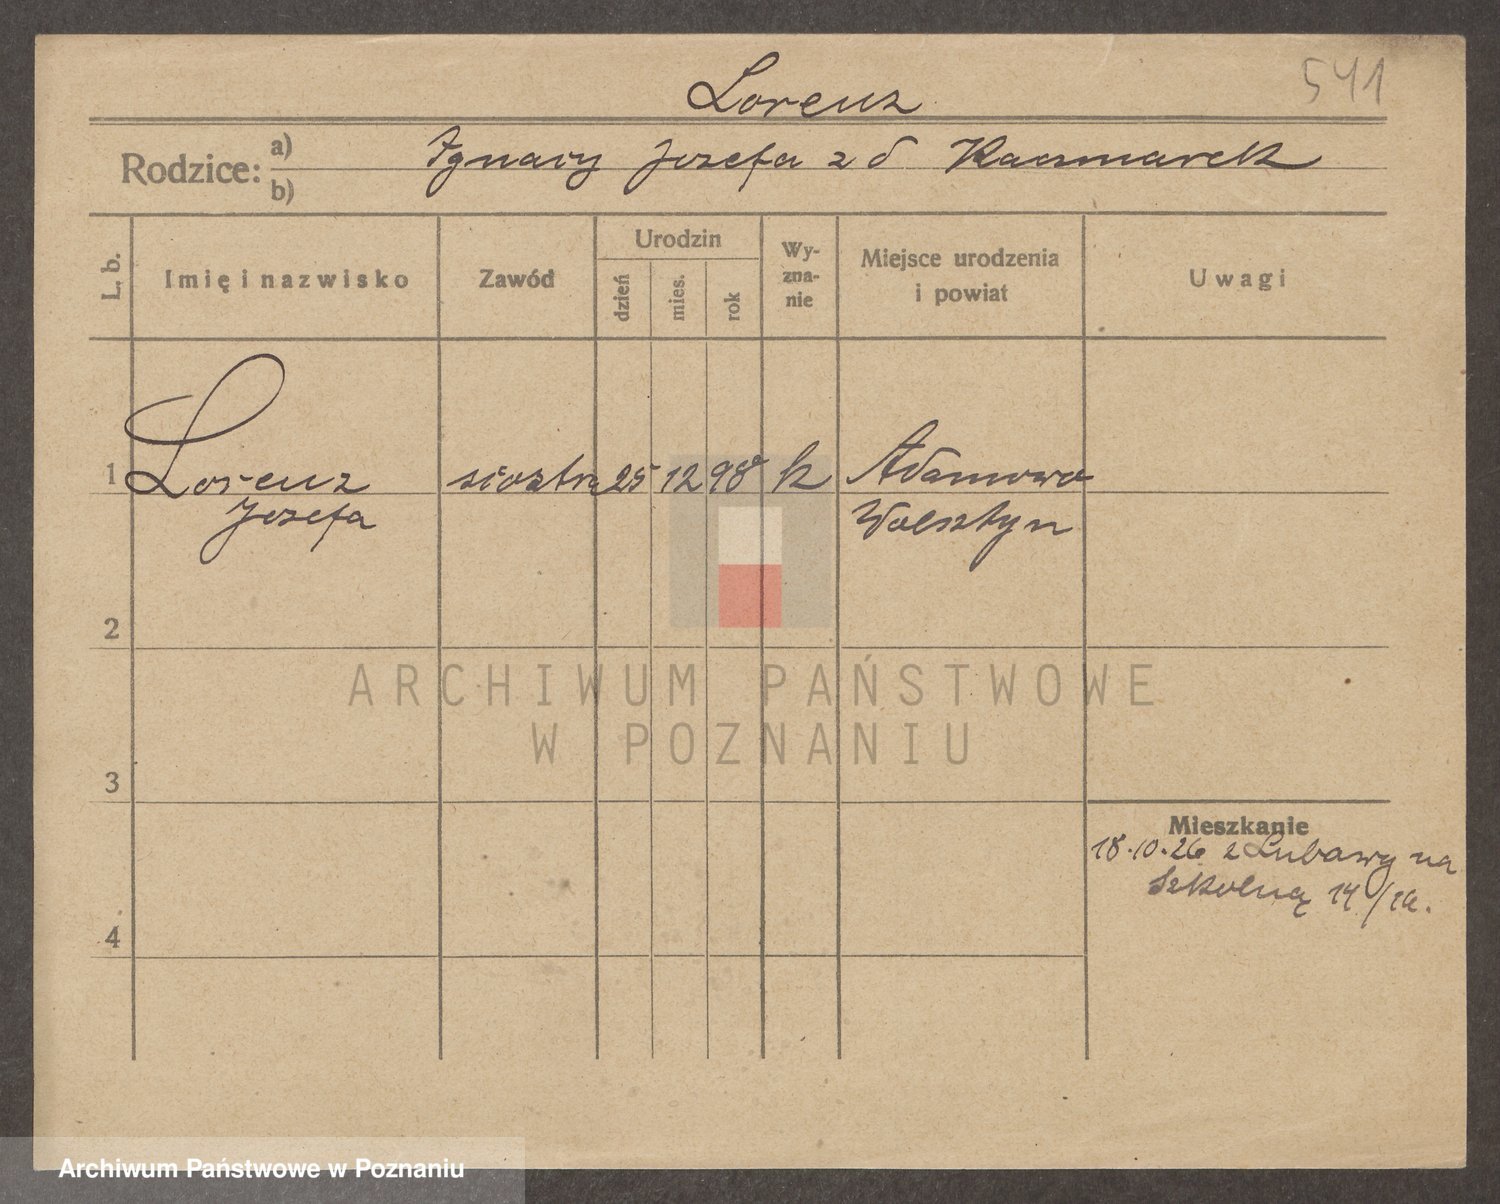 Lorenz
541
Rodzice:
a) Ignacy Jozefa z d Kaczmarek
b)
L. b.
Imię i nazwisko
Zawód
Urodzin
dzień
mies.
rok
Wy-
zna-
nie
Miejsce urodzenia
i powiat
Uwagi
1 Lorenz siostra 25 12 98 k Adamowo
Jozefa Wolsztyn
2
3
4
Mieszkanie
18.10.26 z Lubawy na
Szkolną 14/1a.
ARCHIWUM PAŃSTWOWE
W POZNANIU
Archiwum Państwowe w Poznaniu